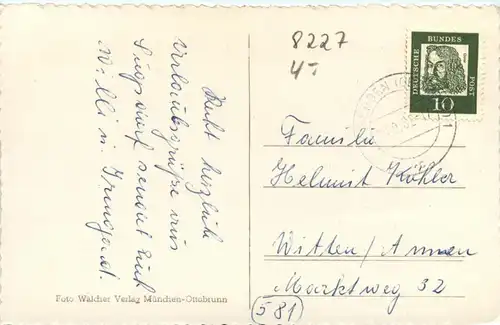 Recht herzliche
Urlaubsgrüße aus
sendet Euch
Willi u. Irmgard.
Foto Walcher Verlag München-Ottobrunn
8227
4T
DEUTSCHE BUNDES POST
10
Familie
Helmut Köhler
Witten / Annen
Marktweg 32
581